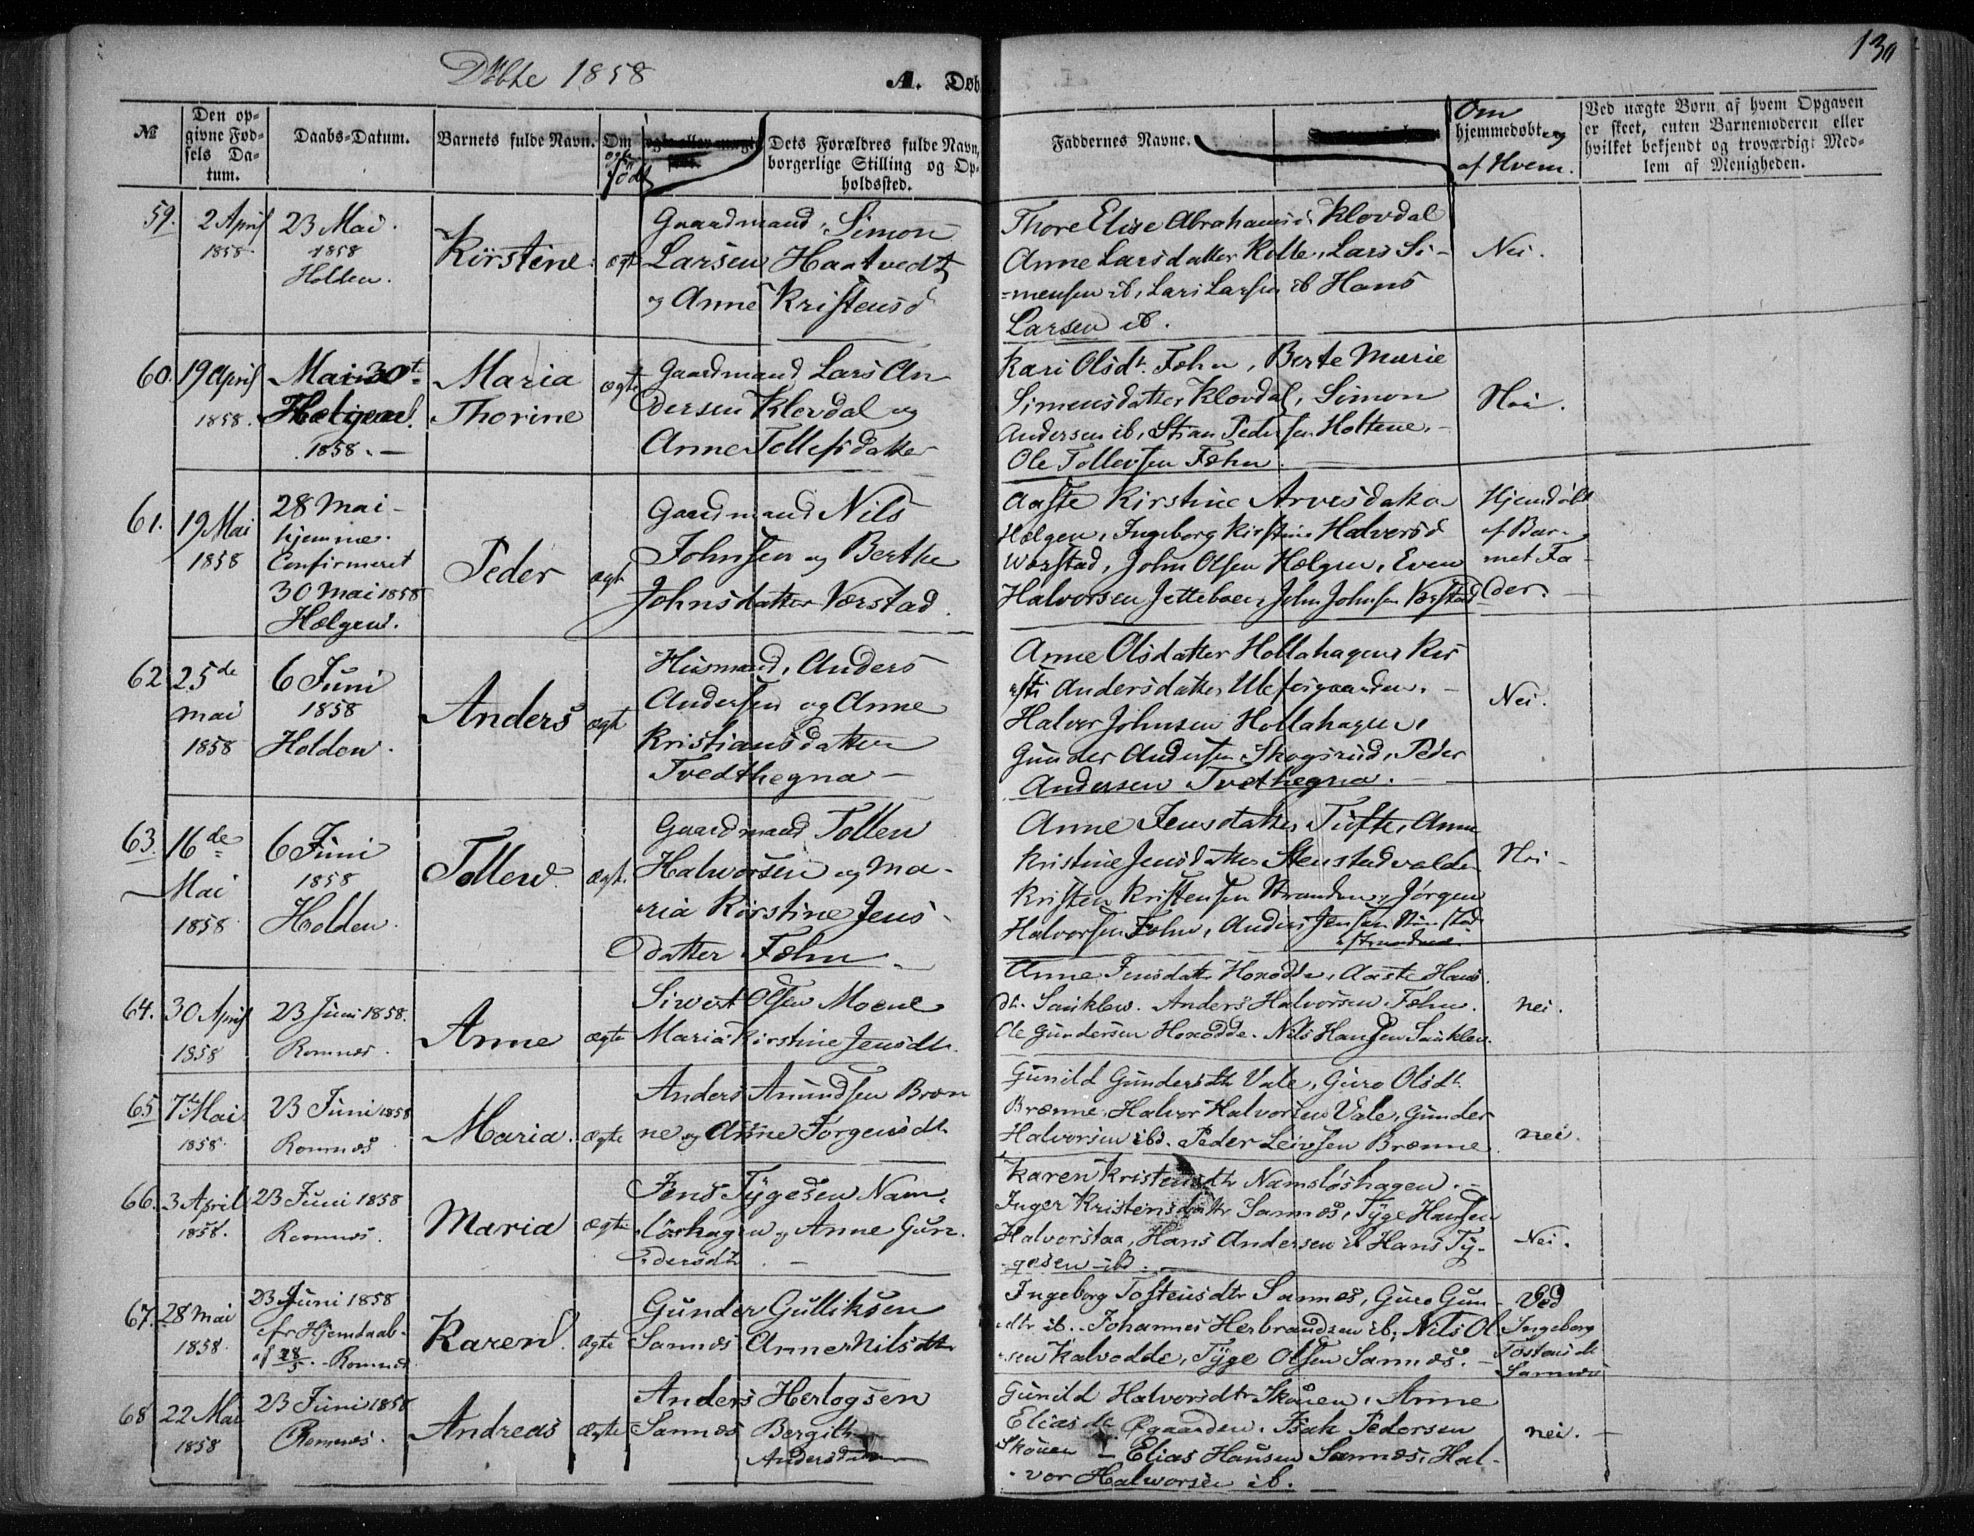 Døbte 1858
A. Døb
130
№
Den op-
givne Fød-
sels Da-
tum.
Daabs-Datum.
Barnets fulde Navn.
Om
ægte
født
Dets Forældres fulde Navn,
borgerlige Stilling og Op-
holdssted.
Faddernes Navne.
Om
hjemmedøbt og
af Hvem.
Ved uægte Børn af hvem Opgaven
er skeet, enten Barnemoderen eller
hvilket bekjendt og troværdigt Med-
lem af Menigheden.
59.
2 April
1858
23 Mai
1858
Holden.
Kirstine
ægt
Gaardmand Simon
Larsen Haatvedt
og Anne Kristensd
Thore Elise Abrahams Klovdal
Anne Larsdatter Kolte, Lars Si-
=mensen ib, Lars Larsen ib Hans
Larsen ib.
Nei.
60.
19 April
1858.
Mai 30te
Hælgen.
1858. —
Maria
Thorine
ægte
Gaardmand Lars An
dersen Klovdal og
Anne Tollefsdatter
Kari Olsdt. Fæhn, Berte Marie
Simensdatter Klovdal, Simon
Andersen ib, Stian Pedersen Holtene, -
Ole Tollevsen Fæhn.
Nei.
61.
19 Mai
1858
28 Mai -
hjemme.
Confirmeret
30 Mai 1858
Hælgen.
Peder
ægt
Gaardmand Nils
Johnsen og Berthe
Johnsdatter Værstad.
Aaste Kirstine Arvesdatter
Hælgen, Ingeborg Kirstine Halversd
Wærstad, John Olsen Hælgen, Even
Halvorsen Jetteboen, John Johnsen Værstad
Hjemdøbt
af Bar-
net Fa-
der.
62
25de
Mai
1858
6 Juni
1858
Holden.
Anders
ægt
Husmand, Anders
Andersen og Anne
Kristiansdatter
Tvedthegna —
Anne Olsdatter Hollahagen, Kir
sti Andersdatter Ulefosgaarden. -
Halvor Johnsen Hollahagen,
Gunder Andersen Skogsrud, Peder
Andersen Tvethegna. —
Nei.
63.
16de
Mai
1858
6 Juni
1858
Holden.
Tollew.
ægt.
Gaardmand Tollew
Halworsen og Ma-
ria Kirstine Jens-
datter Fæhn -
Anne Jensdatter Tufte, Anne
Kristine Jensdatter Stenstadvalden
Kristen Kristensen Stranden, Jørgen
Halvorsen Fæhn, Anders Jensen
Nei -
64.
30 April
1858
23 Juni 1858.
Romnæs.
Anne
ægte
Siwert Olsen Moene
Maria Kirstine Jensdtr.
Anne Jensdatter Hoxodde, Aaste Hans
dtr. Sanklew. Anders Halvorsen Fæhn.
Ole Gundersen Hoxodde. Nils Hansen Sanklew.
nei.
65
7de Mai
1858.
23 Juni 1858
Romnæs
Maria.
ægte
Anders Amundsen Bræn
ne og Anne Jørgensdtr.
Gunild Gundersdtr Vale, Guro Olsdtr.
Brænne. Halvor Halvorsen Vale, Gunder
Halvorsen ibd. Peder Leivsen Brænne.
nei.
66.
3 April
1858.
23 Juni 1858
Romnæs.
Maria
ægte
Jens Tygesen Nam-
løshagen og Anne Gun-
dersdtr. —
Karen Kristensdtr Namsløshagen. -
Inger Kristensdatter Sannæs, Tyge Hansen
Halvorstaa, Hans Andersen ib Hans Ty-
gesen ib. -
Nei.
67.
28 Mai
1858.
23 Juni 1858
efr Hjemdaab
af 28/5. Romnæs
Karen.
ægte
Gunder Gulliksen
Sannæs Anne Nilsdtr
Ingeborg Tostensdtr Sannæs, Guro Gun-
dtr ib. Johannes Herbrandsen ib, Nils Ol-
sen Kalvodde, Tyge Olsen Sannæs. -
Ved
Ingeborg
Tostensdt
Sannæs
68
22 Mai
1858
23 Juni 1858
Romnæs.
Andreas
ægte
Anders Hertogsen
Sannæs Bergith
Andersdatter
Gunild Halvorsdtr Skouen, Anne
Eliasdtr. Øgaarden. Isak Pedersen
Skouen — Elias Hansen Sannæs, Hal-
vor Halworsen ib.
nei. —